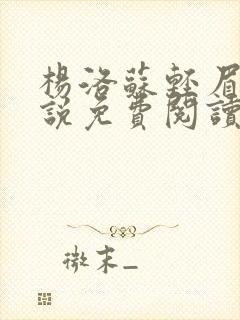 楊洛蘇輕眉
說免費閱讀
微末_